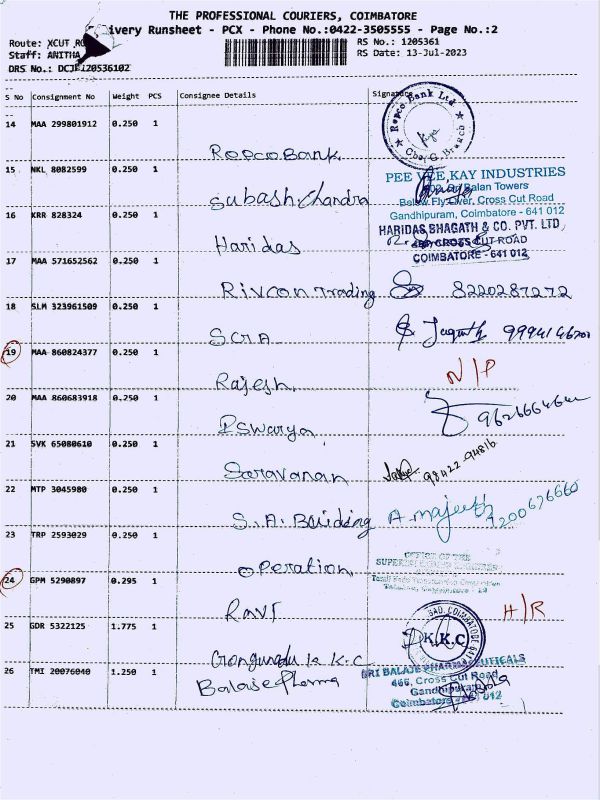 THE PROFESSIONAL COURIERS, COIMBATORE
ivery Runsheet - PCX - Phone No.:0422-3505555 - Page No.:2
Route: XCUT RO
RS No.: 1205361
Staff: ANITHA
RS Date: 13-Jul-2023
DRS No.: DCJF120536102
S No Consignment No Weight PCS Consignee Details Signature
14 MAA 299801912 0.250 1
Repco Bank
Repco Bank Ltd
Cbe, G. Branch
15 NKL 8082599 0.250 1
Subash Chandra
PEE VEE KAY INDUSTRIES
Balan Towers
Below Fly Over, Cross Cut Road
Gandhipuram, Coimbatore - 641 012
16 KRR 828324 0.250 1
Haridas
HARIDAS BHAGATH & CO. PVT. LTD
CROSS CUT ROAD
COIMBATORE - 641 012
17 MAA 571652562 0.250 1
Rivcon Trading 8220287272
18 SLM 323961509 0.250 1
SCIA
19 MAA 860824377 0.250 1
Rajesh N/P
20 MAA 860683918 0.250 1
21 SVK 65080610 0.250 1
Saravanan 98422-94816
22 MTP 3045980 0.250 1
S.A. Building A. majeeth 9200676660
23 TRP 2593029 0.250 1
Operation
OFFICE OF THE
24 GPM 5290897 0.295 1
Ravi H/R
25 GDR 5322125 1.775 1
Gongunadu K.K.C
K.K.C
26 TMI 20076040 1.250 1
Balaje Pharma
SRI BALAJE PHARMACEUTICALS
466, Cross Cut Road
Gandhipuram
Coimbatore - 641 012